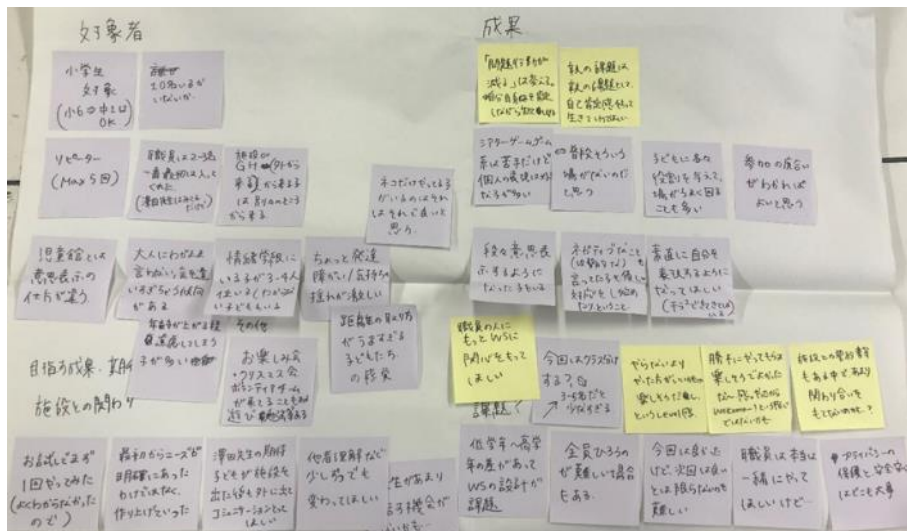 対象者
小学生
対象
(小6 or 中1は
OK)
10名いるか
いないか.
リピーター
(Max 5回)
職員は2~3名
一番最初は入って
くれた.
施設の
から来る
は別のところ
から来る
ネコだけだってる子
がいるのはそれ
はそれで良いと
思う.
児童館とは
意思表示の
仕方が違う.
大人にわがまま
言わない、気を遣
いすぎちゃう傾向
がある
情緒学級に
いる子が3~4人
子どももいる
ちょっと発達
障がい/気持ちの
揺れが激しい
年齢が上がる程
しまう
子が多い
その他
お楽しみ会
・クリスマス会
ボランティアチーム
が来てることも
遊び
距離の取り方
がうますぎる
子どもたち
の啓発
目指す成果・期待
施設との関わり
お試しでまず
1回やってみた
(よくわからなかった
ので)
最初からニーズが
明確にあった
わけではなく、
作り上げていった
澤田先生の期待
子どもが施設を
出た後も外に出て
コミュニケーションとって
ほしい
他者理解など
少しずつでも
変わってほしい
生があまり
機会が
成果
「問題行動が
減る」は答える。
自分自身を肯定
しながら
大人の課題は
大人の課題として、
自己肯定感もって
生きていってほしい
シアターゲーム
系は苦手だけど
個人の表現は好き
な子が多い
普段そういう
場がないのだ
と思う
子どもに各々
役割を与えて、
場がうまく回る
ことも多い
参加の度合い
がわかれば
よいと思う
段々意思表
示するように
なった子もいる
ネガティブなこと
言ってた子も優しい
対応をし始め
たりということ
素直に自分を
表現するように
なってほしい
職員の人に
もっとWSに
関心をもって
ほしい
課題
今回はクラス分け
する?
3-4名だと
少なすぎる
やらないより
やった方がいいもの
楽しそうだし、
というレベル感
勝手にやってもらう
楽しそうでよかった
施設との契約事項
もある中であまり
関わり合いを
もてないのかも..?
低学年~高学
年の差があって
WSの設計が
課題
全員ひろうの
が難しい場合
もある.
今回は良かった
けど、次回は良い
とは限らないのも
難しい
職員は本当は
一緒にやって
ほしいけど…
プライバシーの
保護と安全安心
はどこも大事